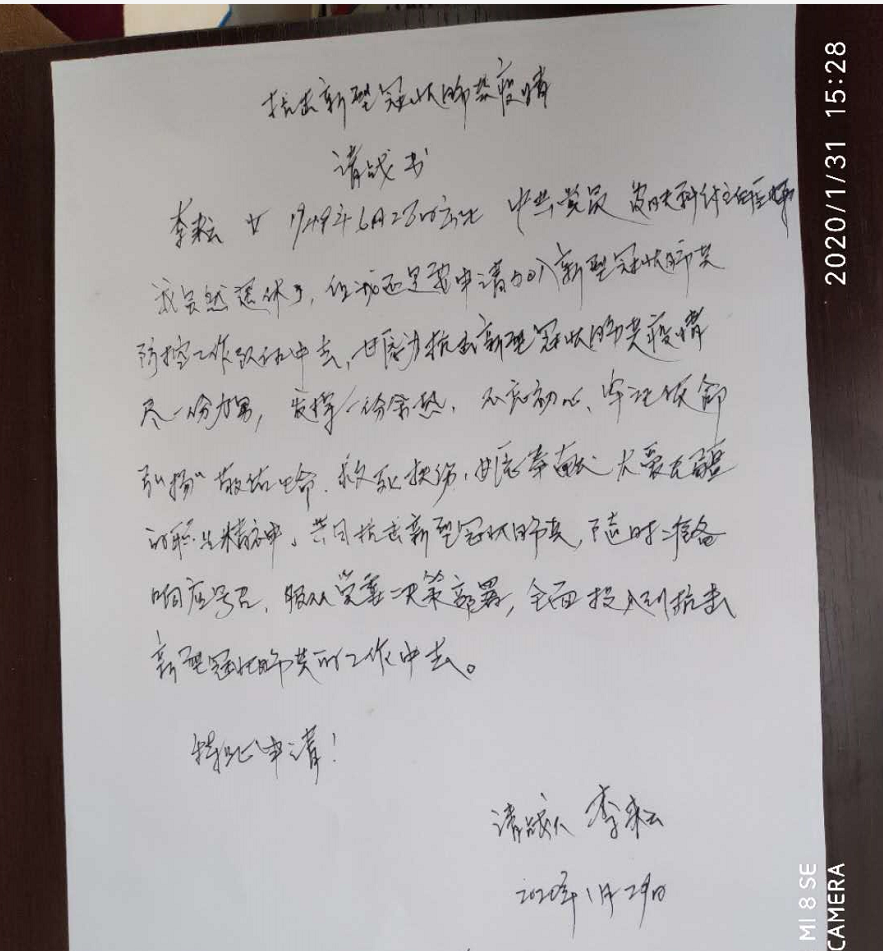 抗击新型冠状肺炎疫情
请战书
李耘 女 1949年6月23日出生 中共党员 皮肤科付主任医师
我虽然退休了,但我还是要申请加入新型冠状肺炎
防控工作队伍中去,甘愿为抗击新型冠状肺炎疫情
尽一份力量,发挥一份余热,不忘初心、牢记使命
弘扬“敬佑生命、救死扶伤,甘愿奉献、大爱无疆
的职业精神,共同抗击新型冠状肺炎,随时准备
响应号召,服从党委决策部署,全面投入到抗击
新型冠状肺炎的工作中去。
特此申请!
请战人 李耘
2020年1月29日
2020/1/31 15:28
MI 8 SE
CAMERA